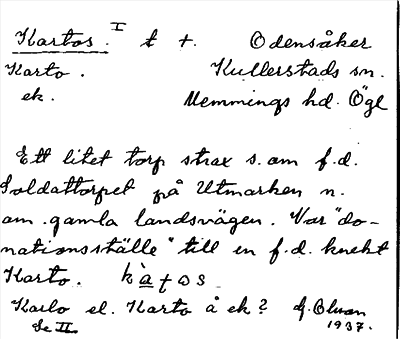 Kartos. I t +. Odensåker
Karto. Kullerstads sn.
ek. Memmings hd. Ögl
Ett litet torp strax s. om f.d.
Soldattorpet på Utmarken n.
om gamla landsvägen. Var "do-
nationsställe" till en f.d. knekt
Karto. kàṭos
Karlo el. Karto å ek? Olson
Se II. 1937.